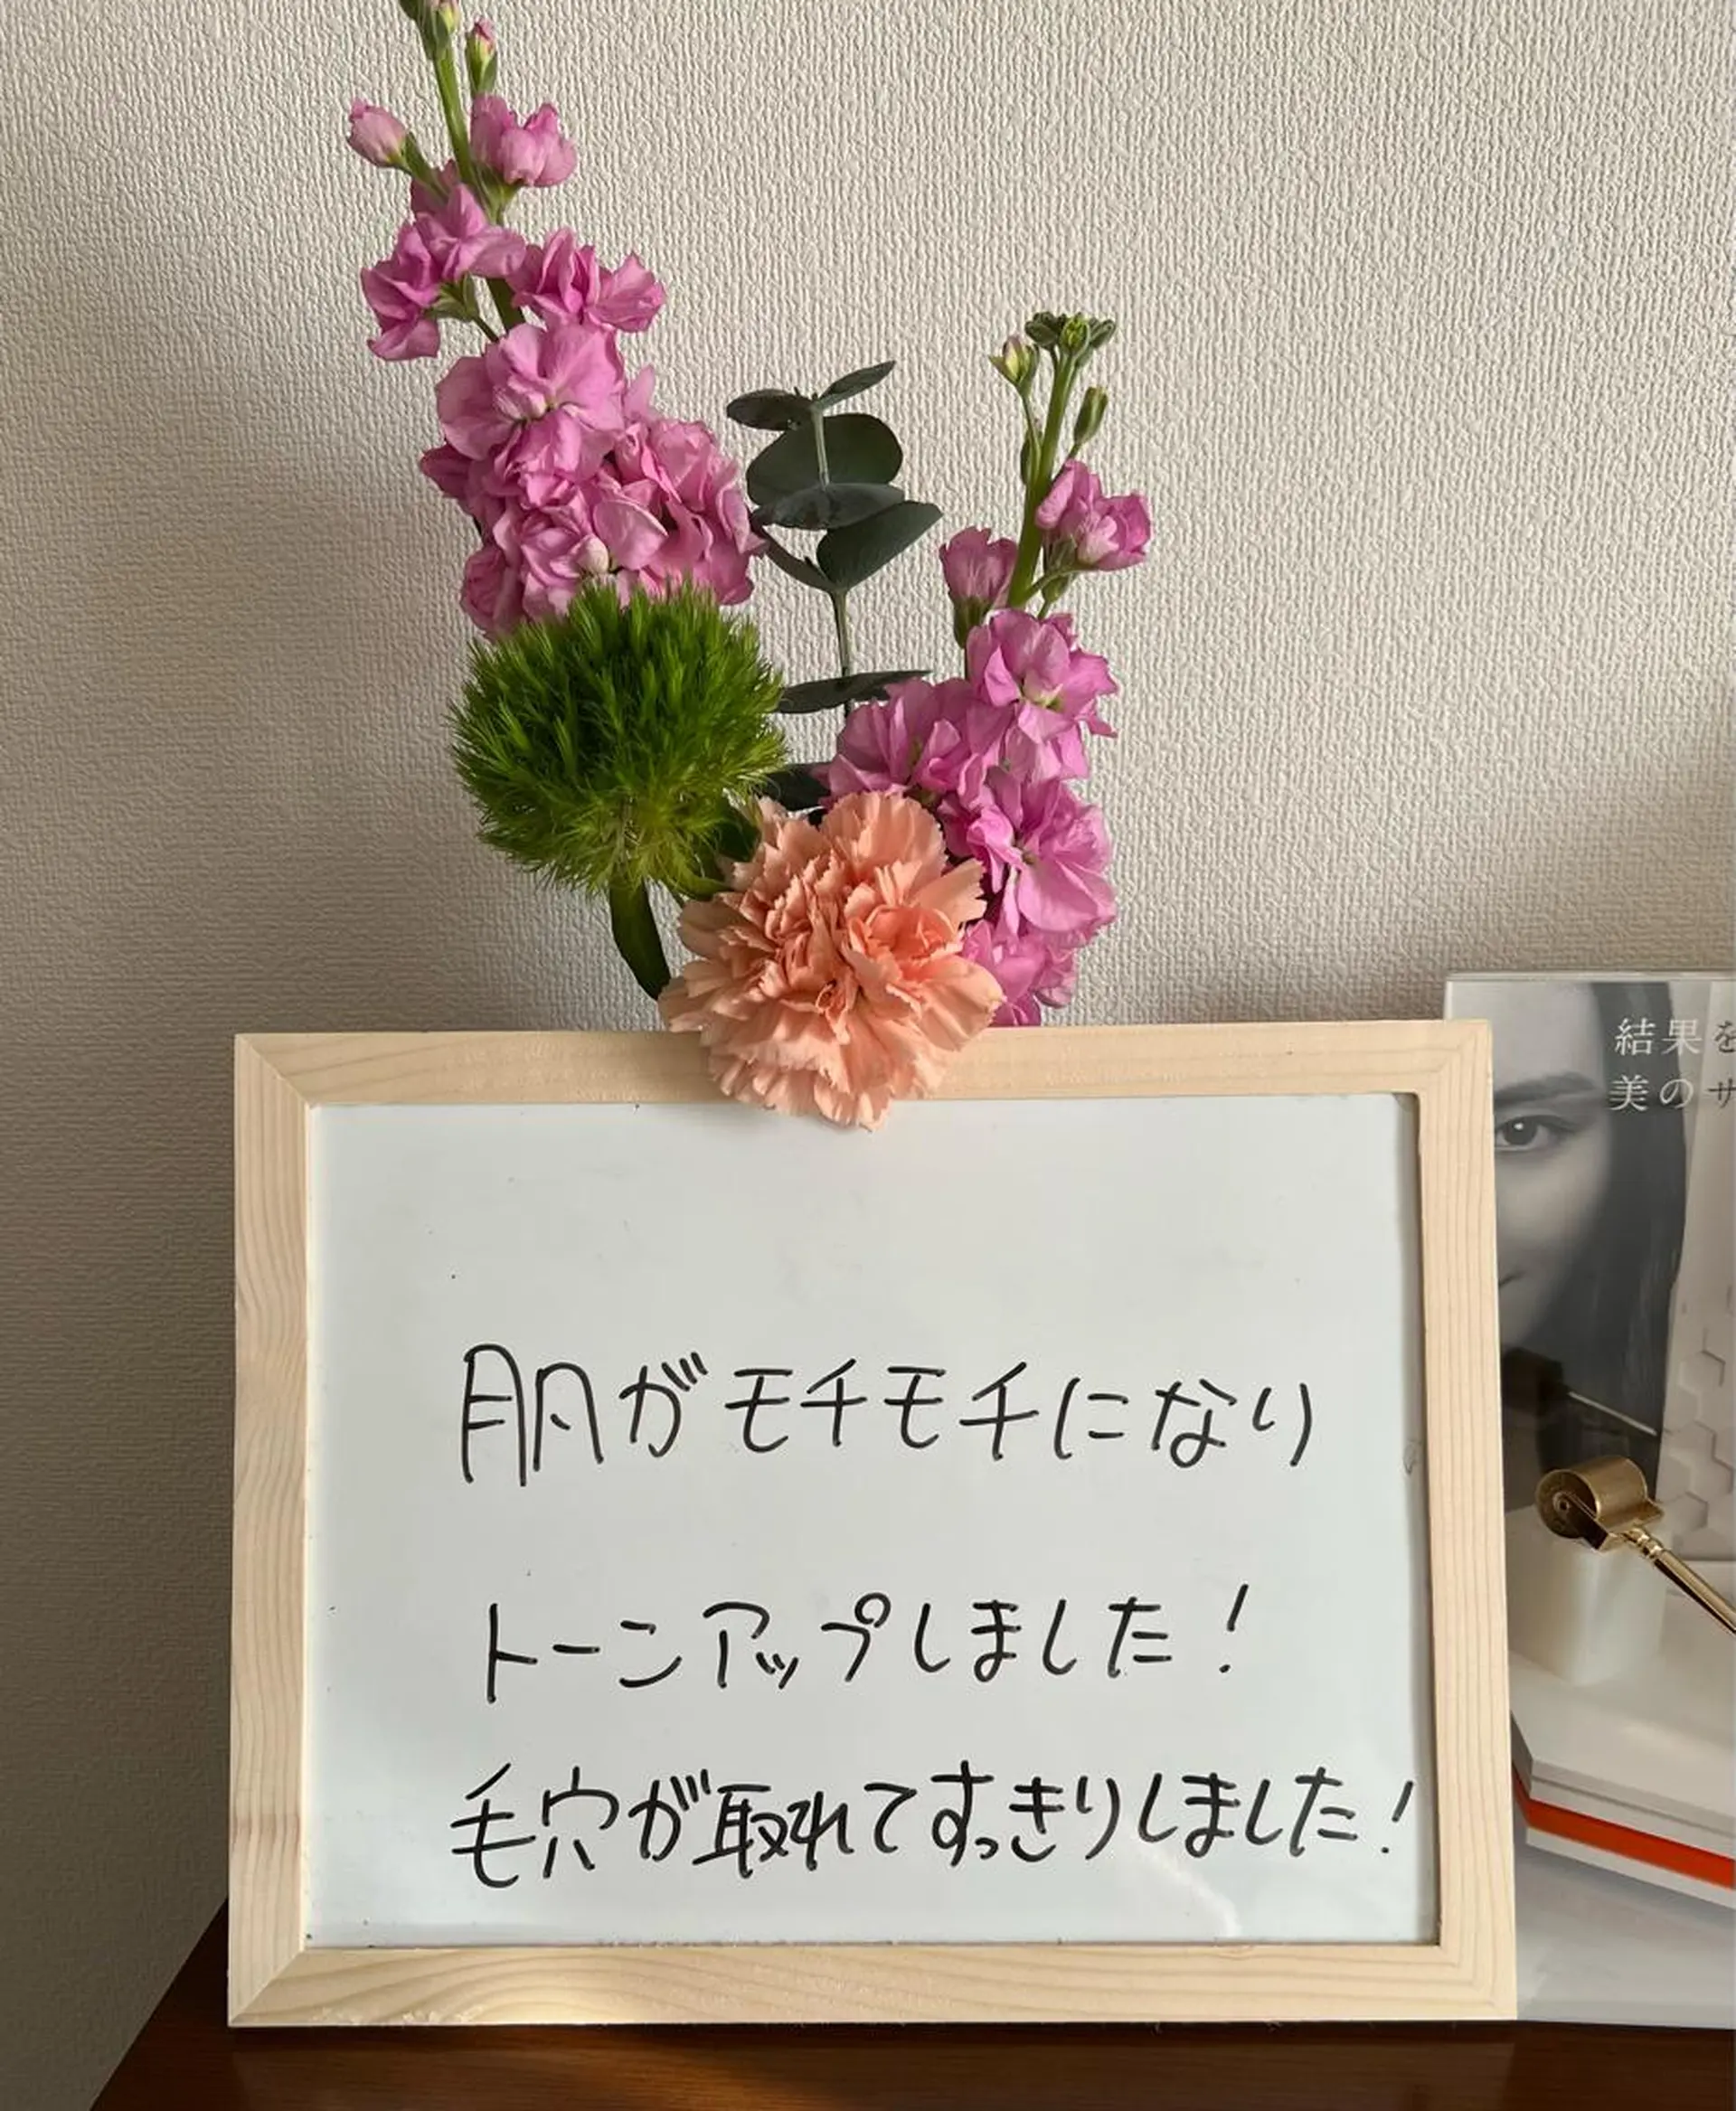 結果を
美のサ
肌がモチモチになり
トーンアップしました!
毛穴が取れてすっきりしました!